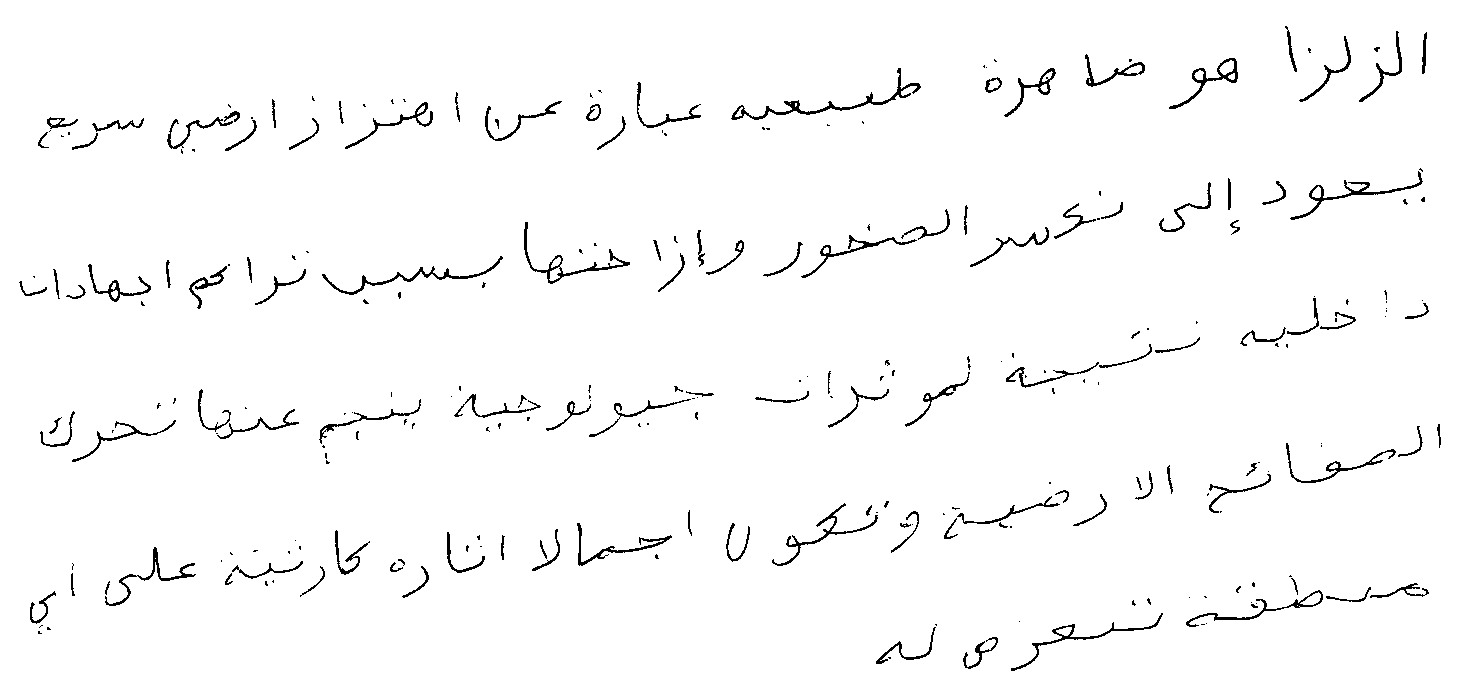 الزلزا هو ضاهرة طبيعيه عبارة عن اهتزاز ارضي سريع
يعود إلى تكسر الصخور وإزاحتها بسبب تراكم اجهادات
داخليه نتيجة لموثرات جيولوجية ينجم عنها تحرك
الصفائح الارضية وتكون اجمالا اثاره كارثية على اي
منطقة تتعرض له